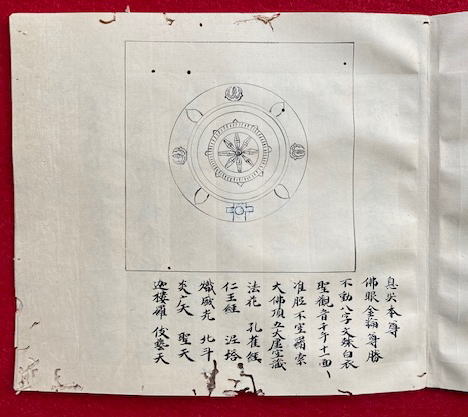 息灾本尊
佛眼金輪尊勝
不動八字文殊白衣
聖觀音千手十一面
准胝不空羂索
大佛頂五大虚空藏
法花　孔雀経
仁王経　泥塔
熾盛光　北斗
炎广天　聖天
迦楼羅　伎藝天